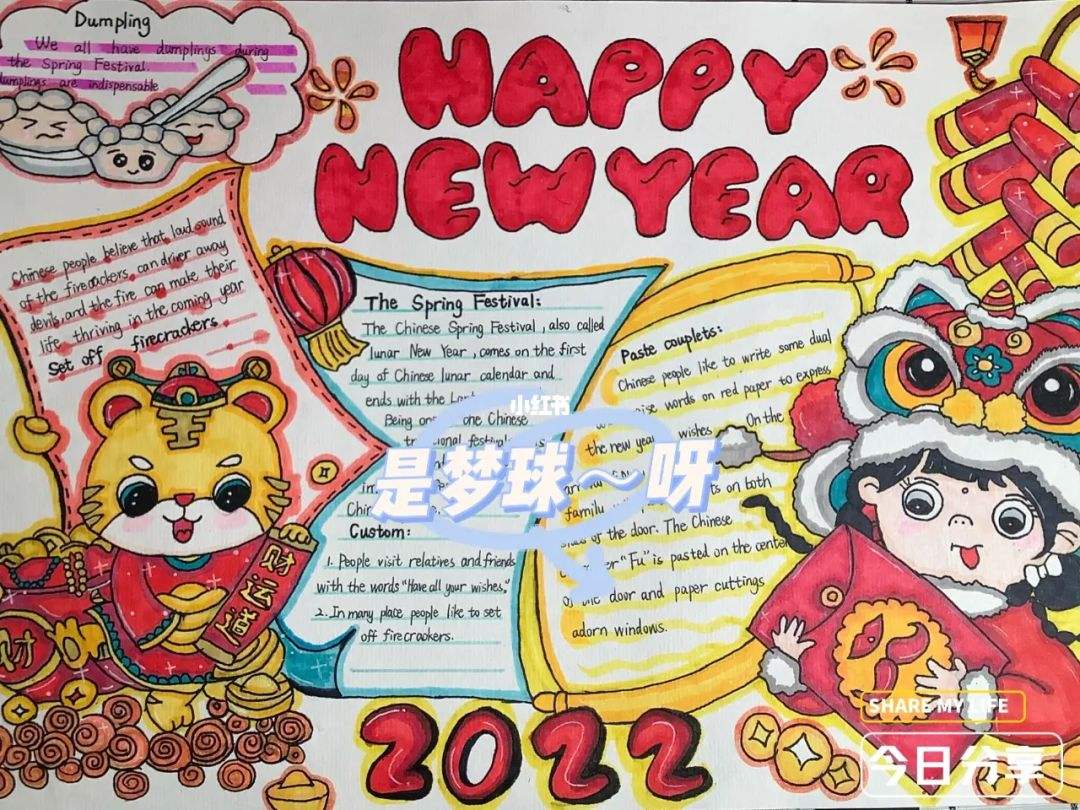 Dumpling
We all have dumplings during
the Spring Festival.
dumplings are indispensable
HAPPY
NEW YEAR
Chinese people believe that loud sound
of the firecrackers can driver away
devils and the fire can make their
life thriving in the coming year
Set off firecrackers.
The Spring Festival:
The Chinese Spring Festival, also called
lunar New Year, comes on the first
day of Chinese lunar calendar and
ends with the
Being one Chinese
小红书
是梦球～呀
Custom:
1. People visit relatives and friends
with the words "Have all your wishes."
2. In many place people like to set
off firecrackers.
Paste couplets:
Chinese people like to write some dual
words on red paper to express
the new year wishes. On the
family
on both
of the door. The Chinese
"Fu" is pasted on the center
of the door and paper cuttings
adorn windows.
王
财运道
财
2022
SHARE MY LIFE
今日分享